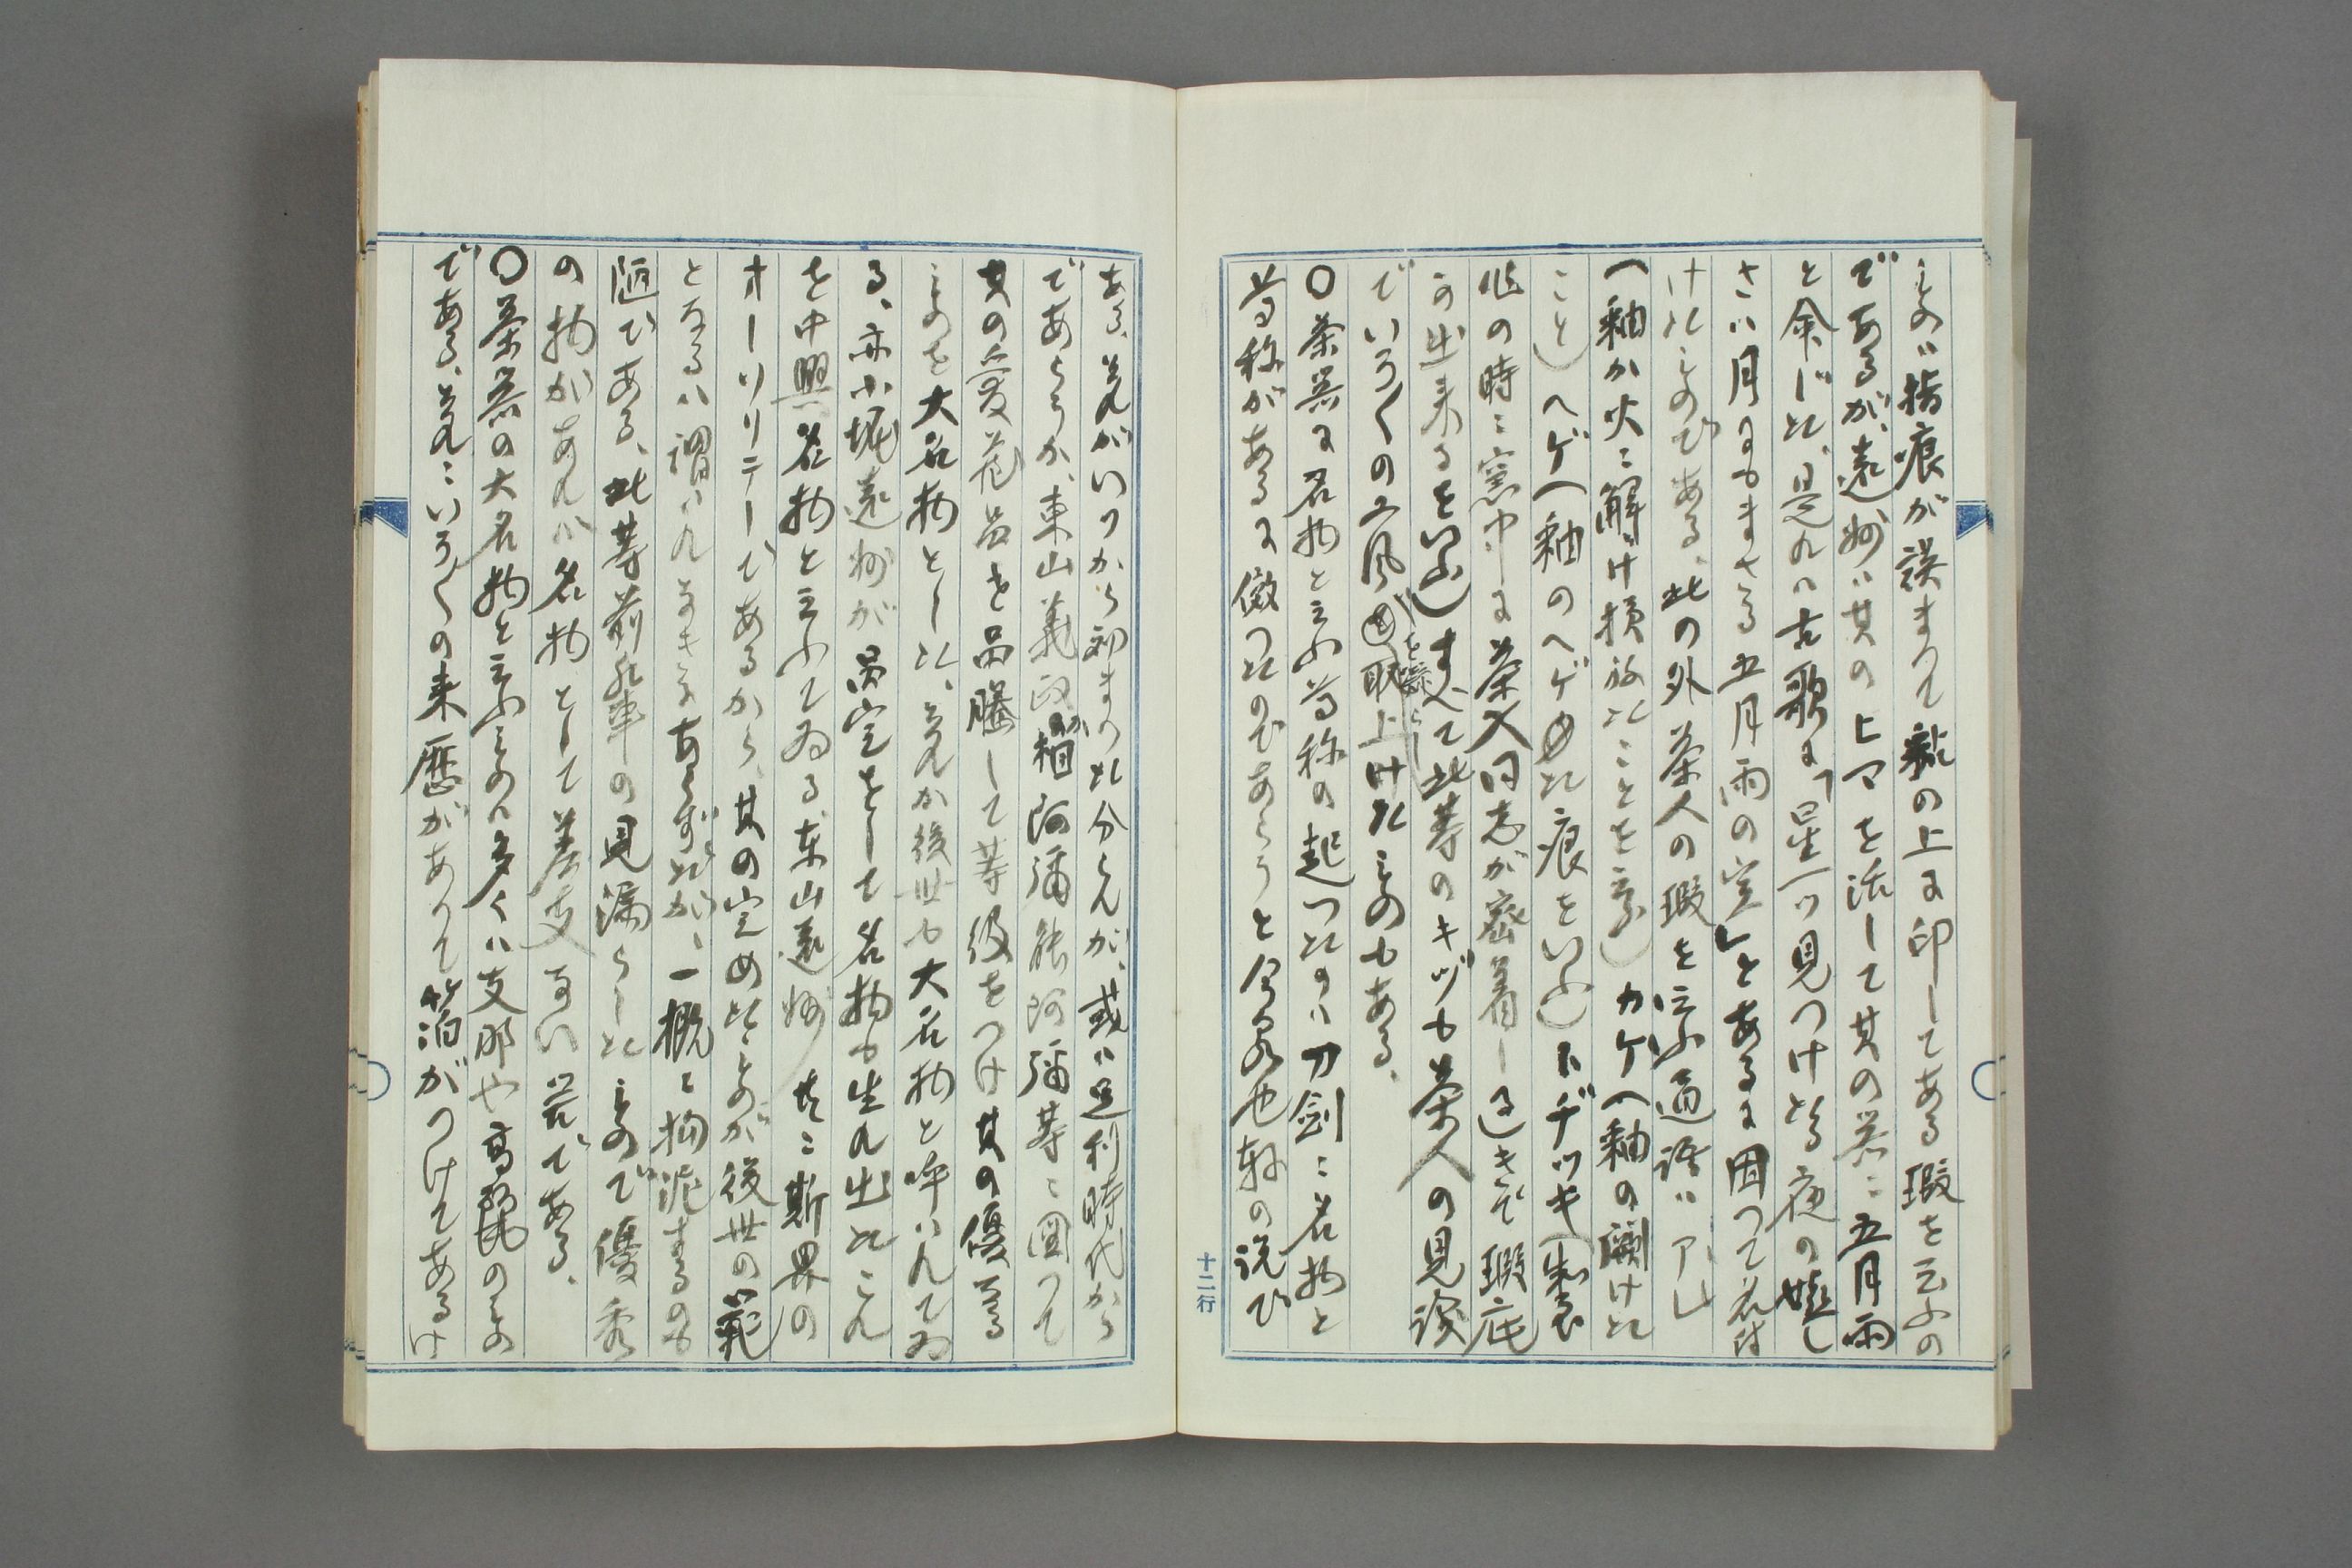 指痕が誤まつて釉の上に印してある瑕を云ふの
であるが、遠州ハ其の上マを活して其の器ニ五月雨
と命じた、是れハ古歌に「星一ツ見つけたる夜の嬉し
さハ月にもまさる五月雨の空」とあるに因つて名付
けたものである、此の外茶人の瑕を云ふ通語ハ
(釉か火ニ解け損ねたことを云ふ)カケ(釉の闕けた
こと)ヘゲ(釉のヘゲめた痕をいふ)トヂツキ(製
作の時ニ窯中に茶入同志が密着し過きて瑕疵
の出来るをいふ)すべて此等のキヅも茶人の見診
でいろ〱の取上けたものもある、
〇茶器に名物と云ふ芳称の起つたのハ刀剣ニ名物と
芳称があるに倣つたのであらうと今泉也軒の説で
ある、それがいつから初まつた分らんが、或ハ足利時代から
であらうか、東山義政が相阿彌能阿彌等ニ図つて
其の愛蔵品を品隲して等級をつけ其の優なる
ものを大名物とした、それか後世も大名物と呼ハんてゐ
る、亦小堀遠州が品定をして名物も生れ出たこれ
を中興名物と云ふてゐる、東山遠州共ニ斯界の
オーソリテーであるから、其の定めたものが後世の範
となるハ謂ハれなきにあらずだが、一概ニ拘泥するのも
陋である、此等前輩の見漏らしたもので優秀
の物があれバ名物として差支ない筈である、
〇茶器の大名物と云ふものハ多くハ支那や高麗のもの
である、それニいろ〱の来歴があつて箔がつけてあるけ
十二行